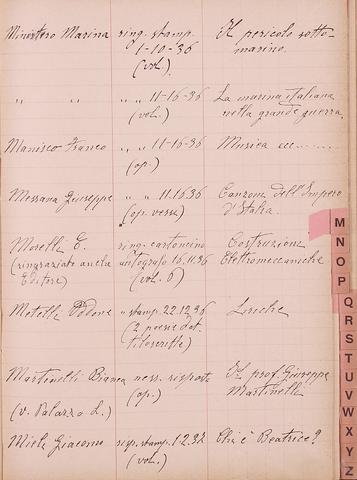 Ministero Marina ring. stamp. Il pericolo sotto-
1-10-36 marino.
(vol.)
" " " " 11-16-36 La marina italiana
(vol.) nella grande guerra
Manisco Franco " " 11-16-36 Musica ecc......
(op.)
Messana Giuseppe " " 11.16.36 Canzone dell'Impero
(op. versi) d'Italia.
Morelli E. ring. cartoncino Costruzione
(ringraziato anche autografo 16.11.36 Elettromeccaniche
Editore) (vol. 6)
" stamp. 22.12.36 Liriche
(2 poesie dat-
tiloscritte)
Martinelli Bianca ness. risposta Il prof. Giuseppe
(op.) Martinelli
(v. Palazzo L.)
Miele Giacomo stamp. Chi è Beatrice?
(vol.)
M
N
O
P
Q
R
S
T
U
V
W
X
Y
Z